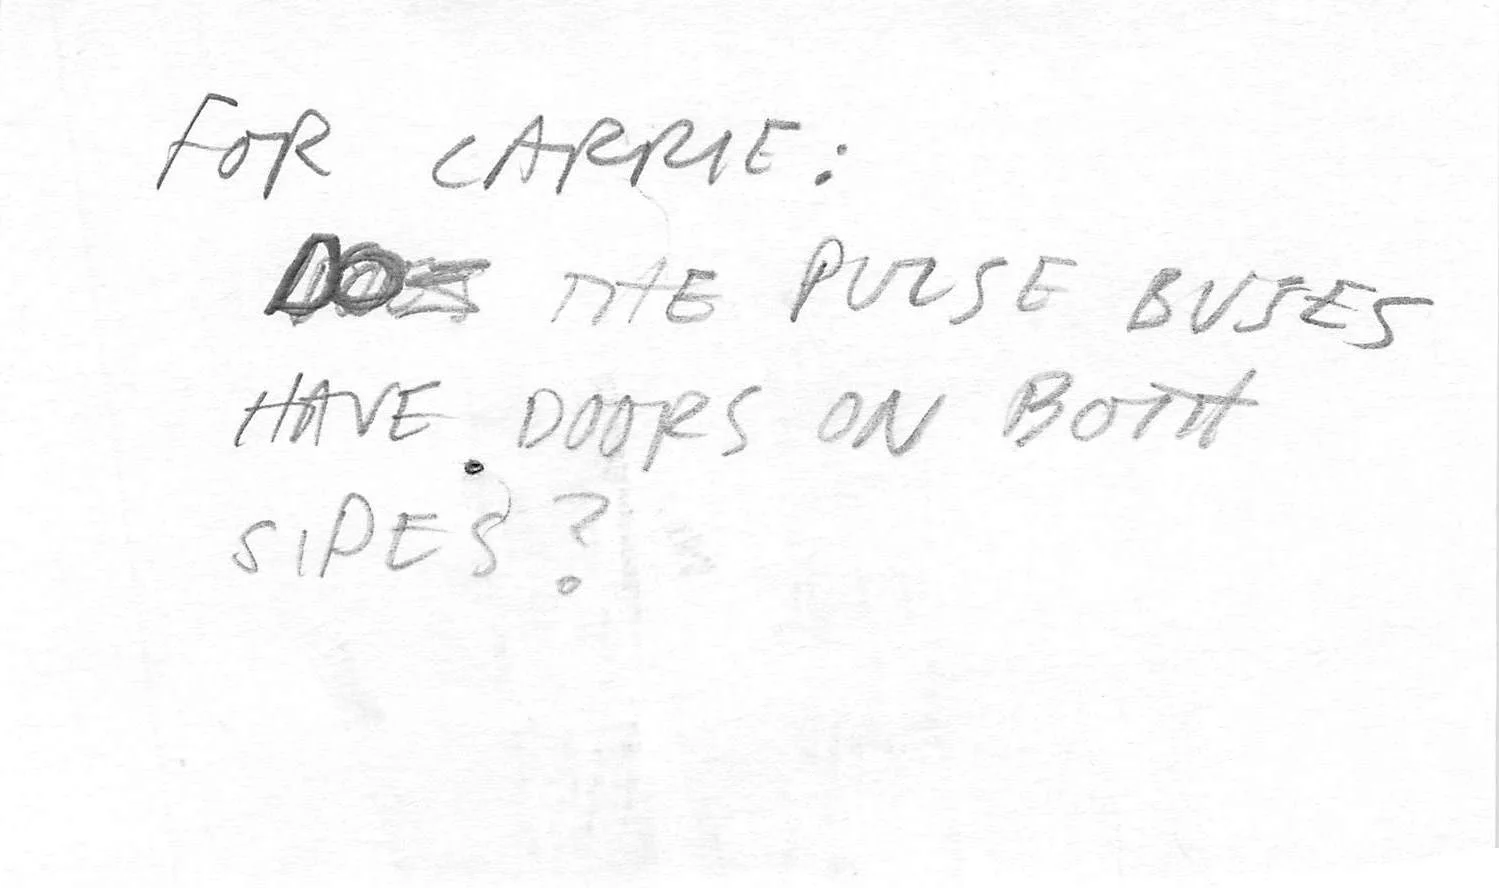 FOR CARRIE:
DO THE PULSE BUSES
HAVE DOORS ON BOTH
SIDES?